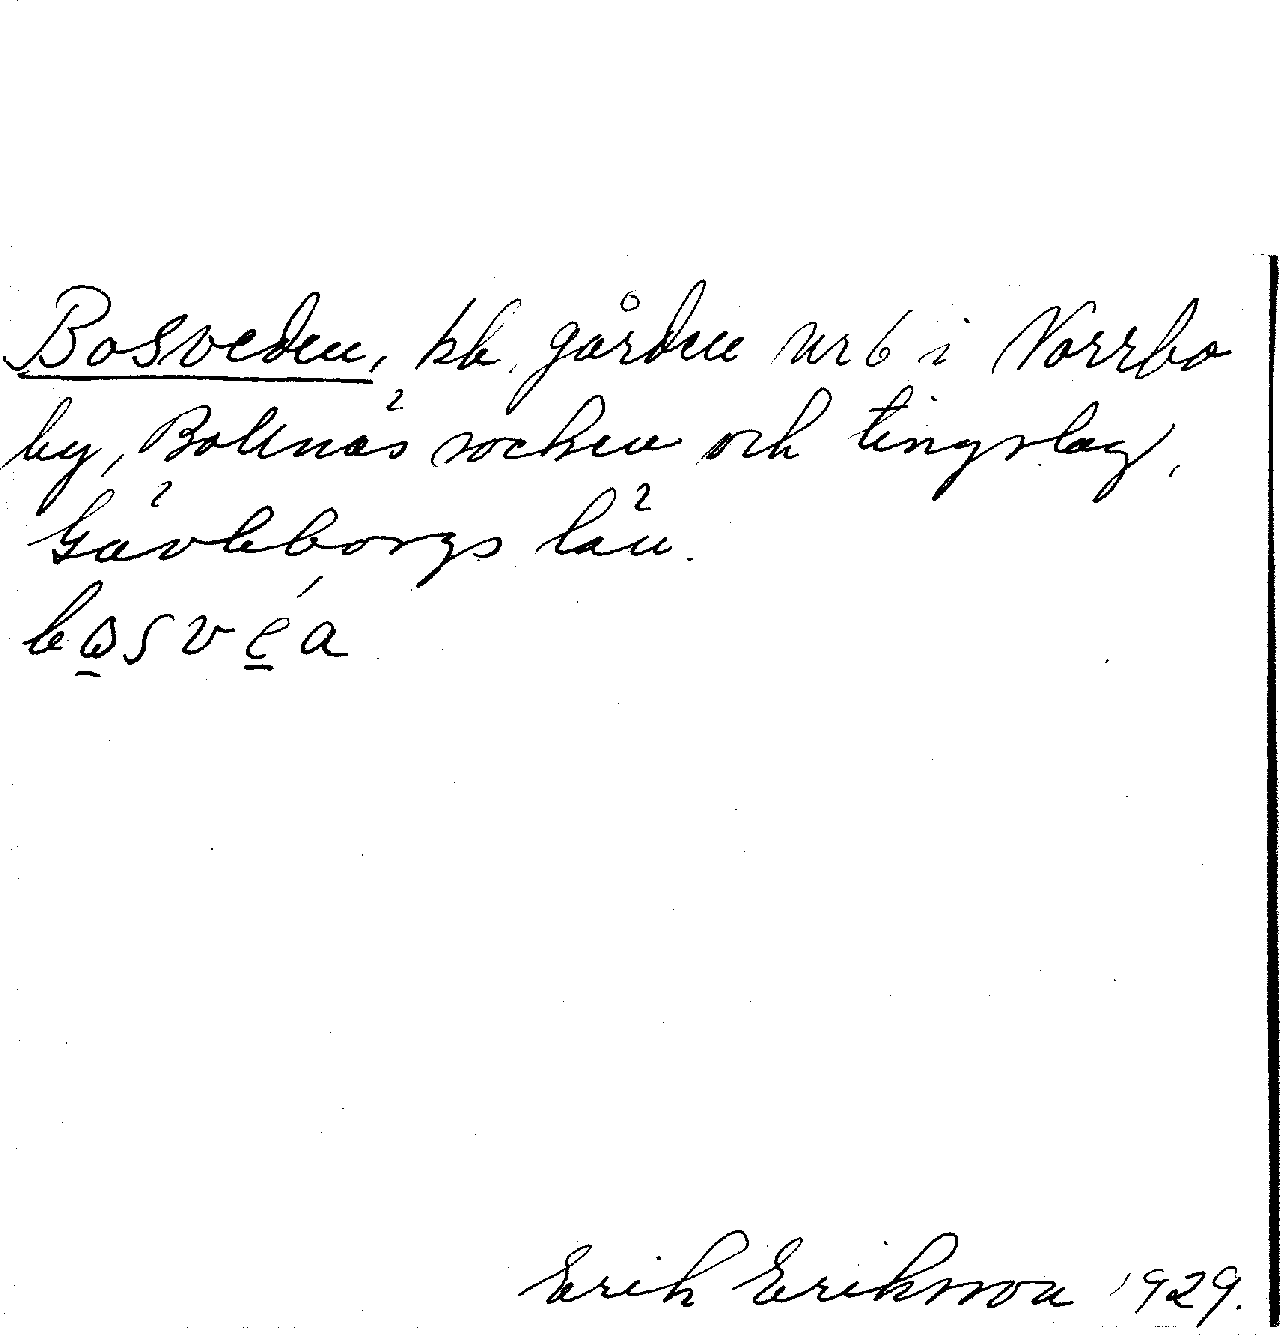 Bosveden, kb. gården nr 6 i Norrbo
by, Bollnäs socken och tingslag,
Gävleborgs län.
bosvéa
Erik Eriksson 1929.